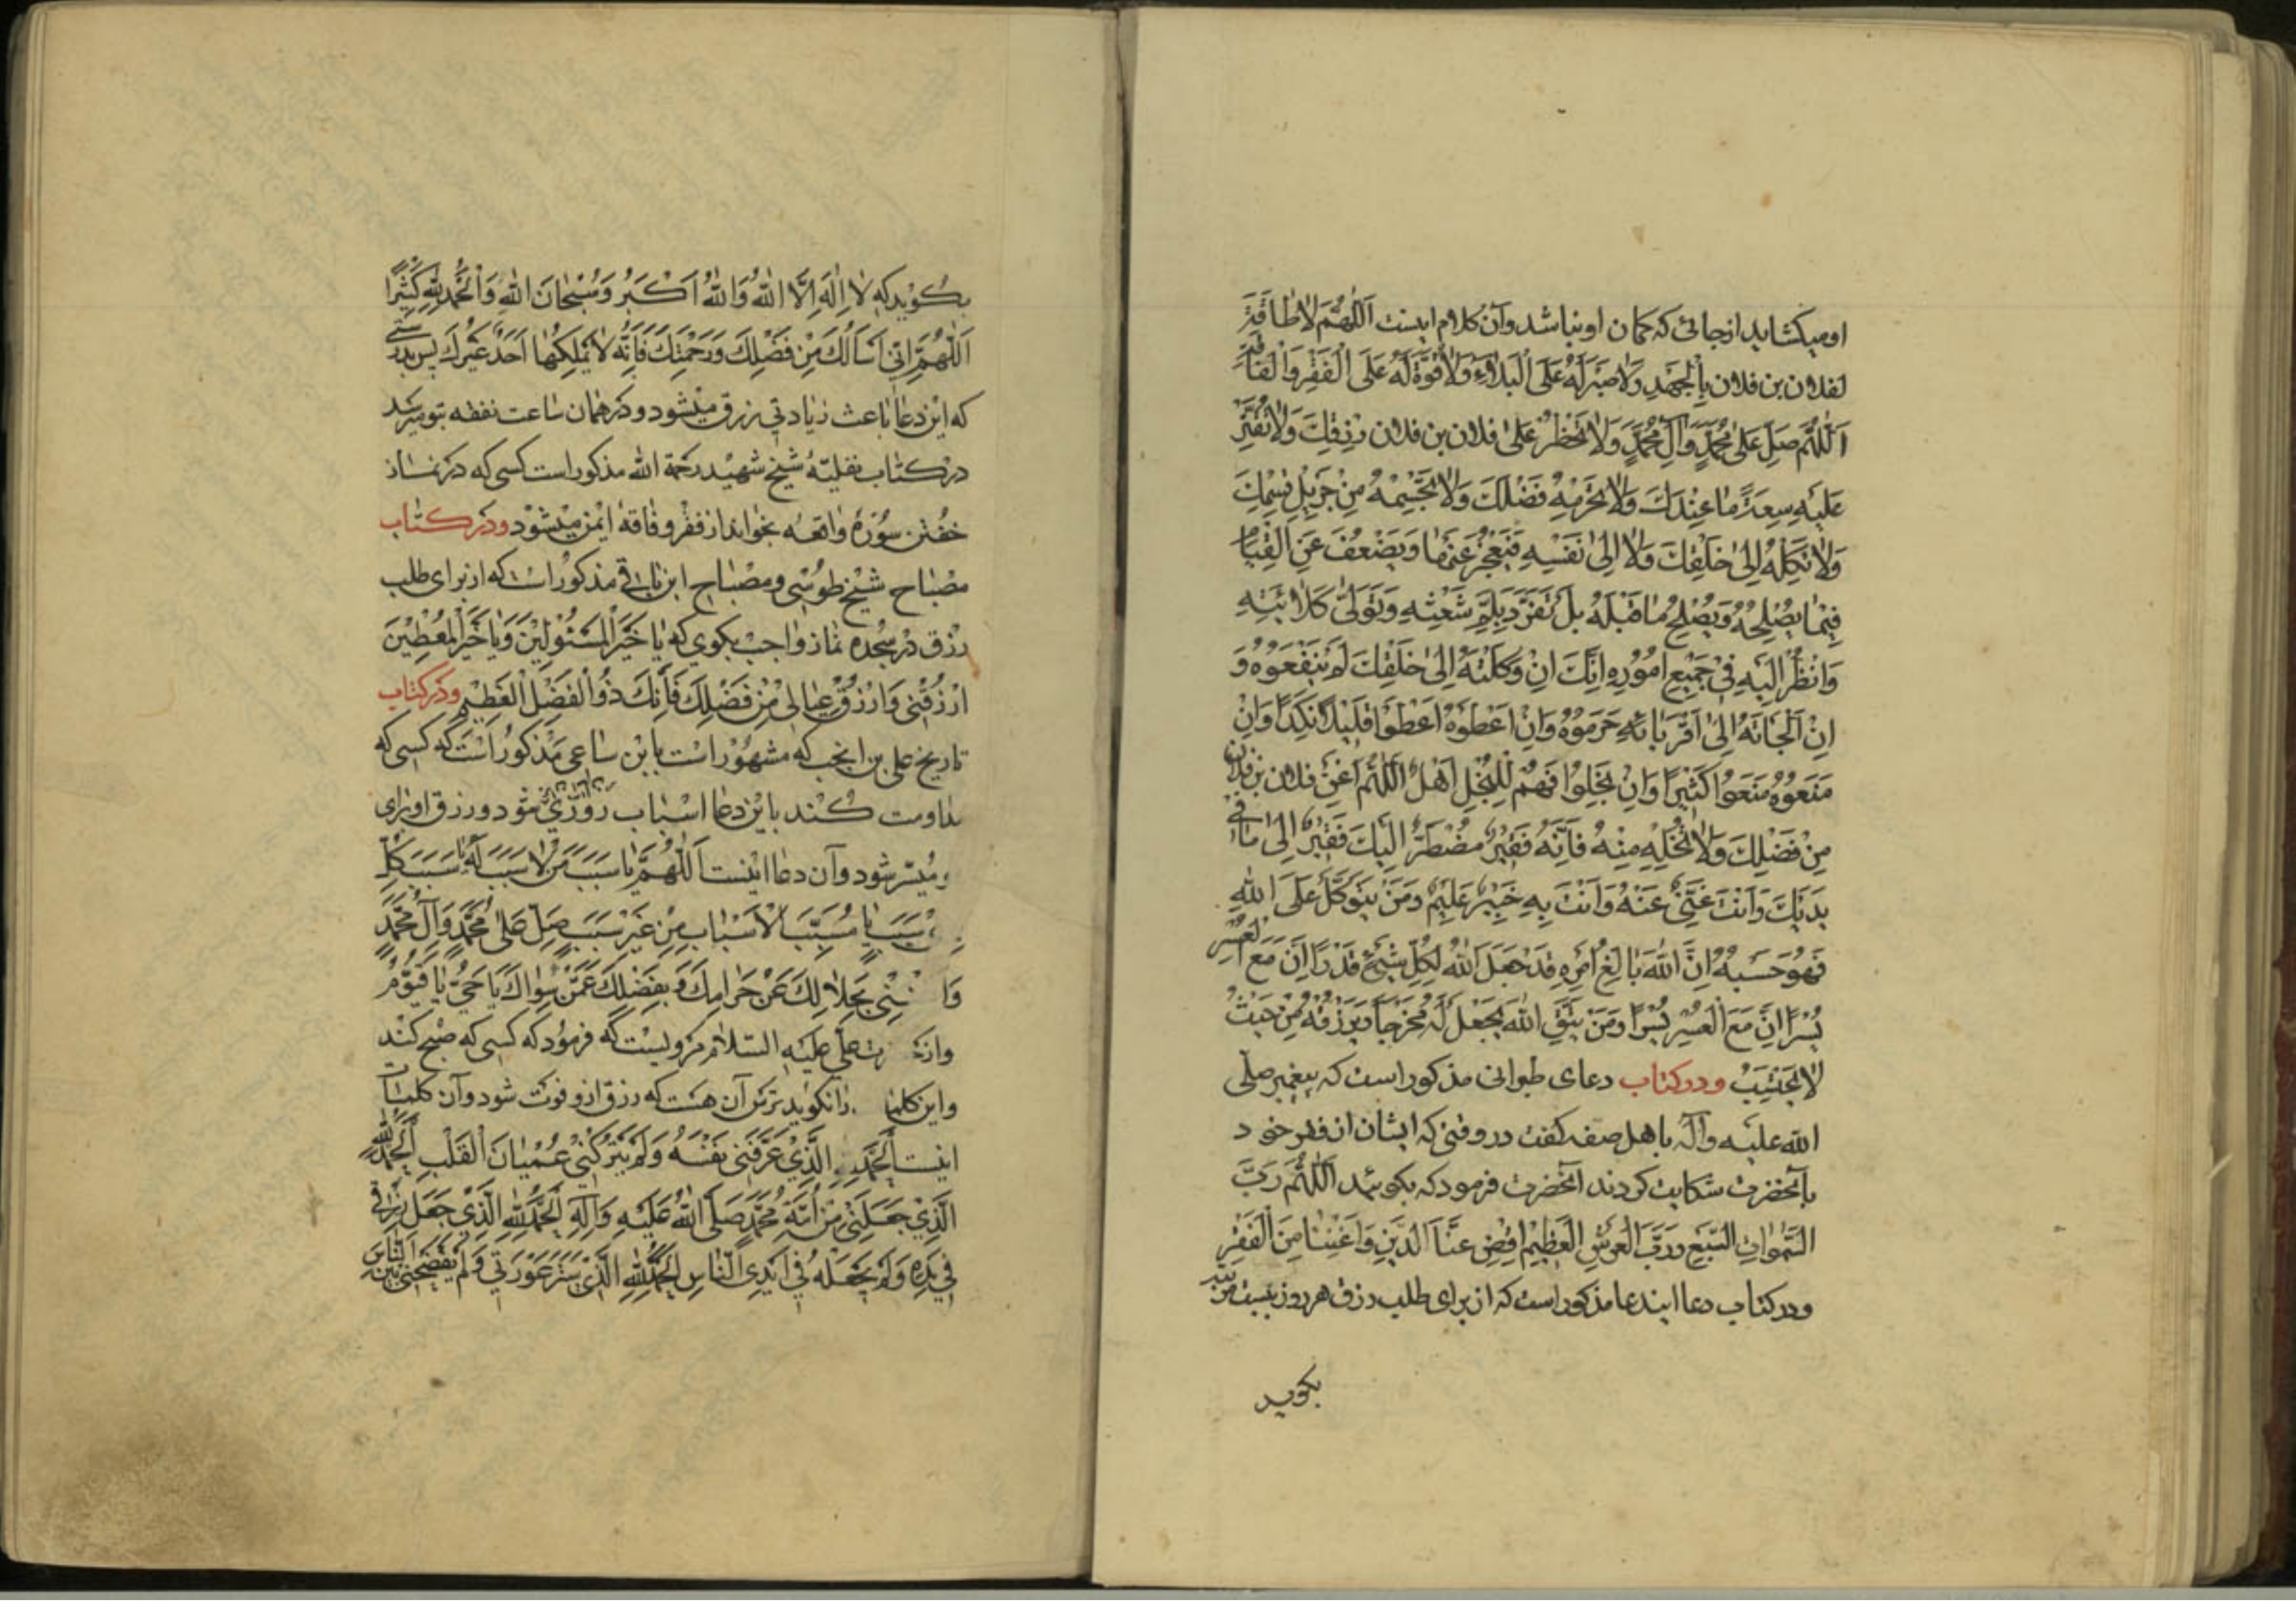 او میکشاید ازجائی که کمان او نباشد و آن کلام اینست اَللّٰهُمَّ لاٰ طاٰقَةَ
لفلان بن فلان بِالْجَهْدِ وَلاٰ صَبْرَ لَهُ عَلَی الْبَلاٰءِ وَلاٰ قُوَّةَ لَهُ عَلَی الْفَقْرِ وَالْفاٰقَةِ
اَللّٰهُمَّ صَلِّ عَلیٰ مُحَمَّدٍ وَآلِ مُحَمَّدٍ وَلاٰ تَحْظُرْ عَلیٰ فلان بن فلان رِزْقَكَ وَلاٰ تُقَتِّرْ
عَلَیْهِ سِعَةَ مٰا عِنْدَكَ وَلاٰ تَحْرِمْهُ فَضْلَكَ وَلاٰ تَحْسِمْهُ مِنْ جَزِیلِ قِسْمِكَ
وَلاٰ تَكِلْهُ اِلیٰ خَلْقِكَ وَلاٰ اِلیٰ نَفْسِهِ فَیَعْجِزُ عَنْهٰا وَیَضْعُفَ عَنِ الْقِیٰامِ
فِیْمٰا یُصْلِحُهُ وَیُصْلِحُ مٰا قَبْلَهُ بَلْ تَفَرَّدْ بِلَمِّ شَعْثِهِ وَتَوَلّیٰ كَلاٰئَتِهِ
وَانْظُرْ اِلَیْهِ فِیْ جَمِیْعِ اُمُوْرِهِ اِنَّكَ اِنْ وَكَلْتَهُ اِلیٰ خَلْقِكَ لَمْ یَنْفَعُوْهُ وَ
اِنْ اَلْجَأتَهُ اِلیٰ اَقْرِبٰائِهِ حَرَمُوْهُ وَاِنْ اَعْطَوْهُ اَعْطَوْا قَلِیْلاً نَكِدًا وَاِنْ
مَنَعُوْهُ مَنَعُوْا كَثِیْرًا وَاِنْ بَخِلُوْا فَهُمْ لِلْبُخْلِ اَهْلٌ اَللّٰهُمَّ اَغْنِ فلان بن فلان
مِنْ فَضْلِكَ وَلاٰ تُخْلِهِ مِنْهُ فَاِنَّهُ فَقِیْرٌ مُضْطَرٌّ اِلَیْكَ فَقِیْرٌ اِلیٰ مٰا فِی
یَدَیْكَ وَاَنْتَ غَنِیٌّ عَنْهُ وَاَنْتَ بِهِ خَبِیْرٌ عَلِیْمٌ وَمَنْ یَتَوَكَّلْ عَلَی اللّٰهِ
فَهُوَ حَسْبُهُ اِنَّ اللّٰهَ بٰالِغُ اَمْرِهِ قَدْ جَعَلَ اللّٰهُ لِكُلِّ شَیْءٍ قَدْرًا اِنَّ مَعَ الْعُسْرِ
یُسْرًا اِنَّ مَعَ الْعُسْرِ یُسْرًا وَمَنْ یَتَّقِ اللّٰهَ یَجْعَلْ لَهُ مَخْرَجاً وَیَرْزُقْهُ مِنْ حَیْثُ
لاٰ یَحْتَسِبُ ودرکتاب دعای طبرانی مذکوراست که پیغمبر صلّی
الله علیه وآله باهل صفه کفت دروقتی که ایشان از فقر خود
بآنحضرت شکایت کردند آنحضرت فرمود که بکوئید اَللّٰهُمَّ رَبَّ
السَّمٰوٰاتِ السَّبْعِ وَرَبَّ الْعَرْشِ الْعَظِیْمِ اِقْضِ عَنَّا الدَّیْنَ وَاَغْنِنٰا مِنَ الْفَقْرِ
ودرکتاب دعا ایندعا مذکور است که از برای طلب رزق هر روز بیست مرتبه
بکوید
بکوید که لاٰ اِلٰهَ اِلَّا اللّٰهُ وَاللّٰهُ اَكْبَرُ وَسُبْحٰانَ اللّٰهِ وَالْحَمْدُ لِلّٰهِ كَثِیْرًا
اَللّٰهُمَّ اِنّی اَسْأَلُكَ مِنْ فَضْلِكَ وَرَحْمَتِكَ فَاِنَّهُ لاٰ یَمْلِكُهٰا اَحَدٌ غَیْرُكَ پس بدرستی
که این دعا باعث زیادتی رزق میشود و در همان ساعت نفقه بتو میرسد
درکتاب نفلیّهٔ شیخ شهید رحمة الله مذکوراست کسی که در نماز
خفتن سورهٔ واقعه بخواند از فقر و فاقه ایمن میشود ودرکتاب
مصباح شیخ طوسی ومصباح ابن باقی مذکوراست که از برای طلب
رزق در سجده نماز واجب بکوی که یٰا خَیْرَ الْمَسْئُوْلِیْنَ وَیٰا خَیْرَ الْمُعْطِیْنَ
اُرْزُقْنی وَارْزُقْ عِیٰالِیْ مِنْ فَضْلِكَ فَاِنَّكَ ذُوالْفَضْلِ الْعَظِیْمِ ودرکتاب
تاریخ علی بن انجب که مشهور است بابن ساعی مذکوراست که کسی که
مداومت کند باین دعا اسباب روزی شود ورزق او برای
میسّر شود وآن دعا اینست اَللّٰهُمَّ یٰا سَبَبَ مَنْ لاٰ سَبَبَ لَهُ یٰا سَبَبَ كُلِّ
سَبَبٍ یٰا مُسَبِّبَ الْاَسْبٰابِ مِنْ غَیْرِ سَبَبٍ صَلِّ عَلیٰ مُحَمَّدٍ وَآلِ مُحَمَّدٍ
وَا نِنْی بِحَلاٰلِكَ عَنْ حَرٰامِكَ وَبِفَضْلِكَ عَمَّنْ سِوٰاكَ یٰا حَیُّ یٰا قَیُّوْمُ
واز رت علی علیه السلام مرویست که فرمود که کسی که صبح کند
واین کلما را نکوید ترس آن هست که رزق ازو فوت شود وآن کلمات
اینست اَلْحَمْدُ الَّذِیْ عَرَّفَنی نَفْسَهُ وَلَمْ یَتْرُكْنِیْ عُمْیٰانَ الْقَلْبِ اَلْحَمْدُ لِلّٰهِ
الَّذِیْ جَعَلَنِیْ مِنْ اُمَّةِ مُحَمَّدٍ صَلَّی اللّٰهُ عَلَیْهِ وَآلِهِ اَلْحَمْدُ لِلّٰهِ الَّذِیْ جَعَلَ رِزْقی
فی یَدِهِ وَلَمْ یَجْعَلْهُ فی اَیْدِی النّاٰسِ اَلْحَمْدُ لِلّٰهِ الَّذِیْ سَتَرَ عَوْرَتی وَلَمْ یَفْضَحْنی بَیْنَ النّاٰسِ